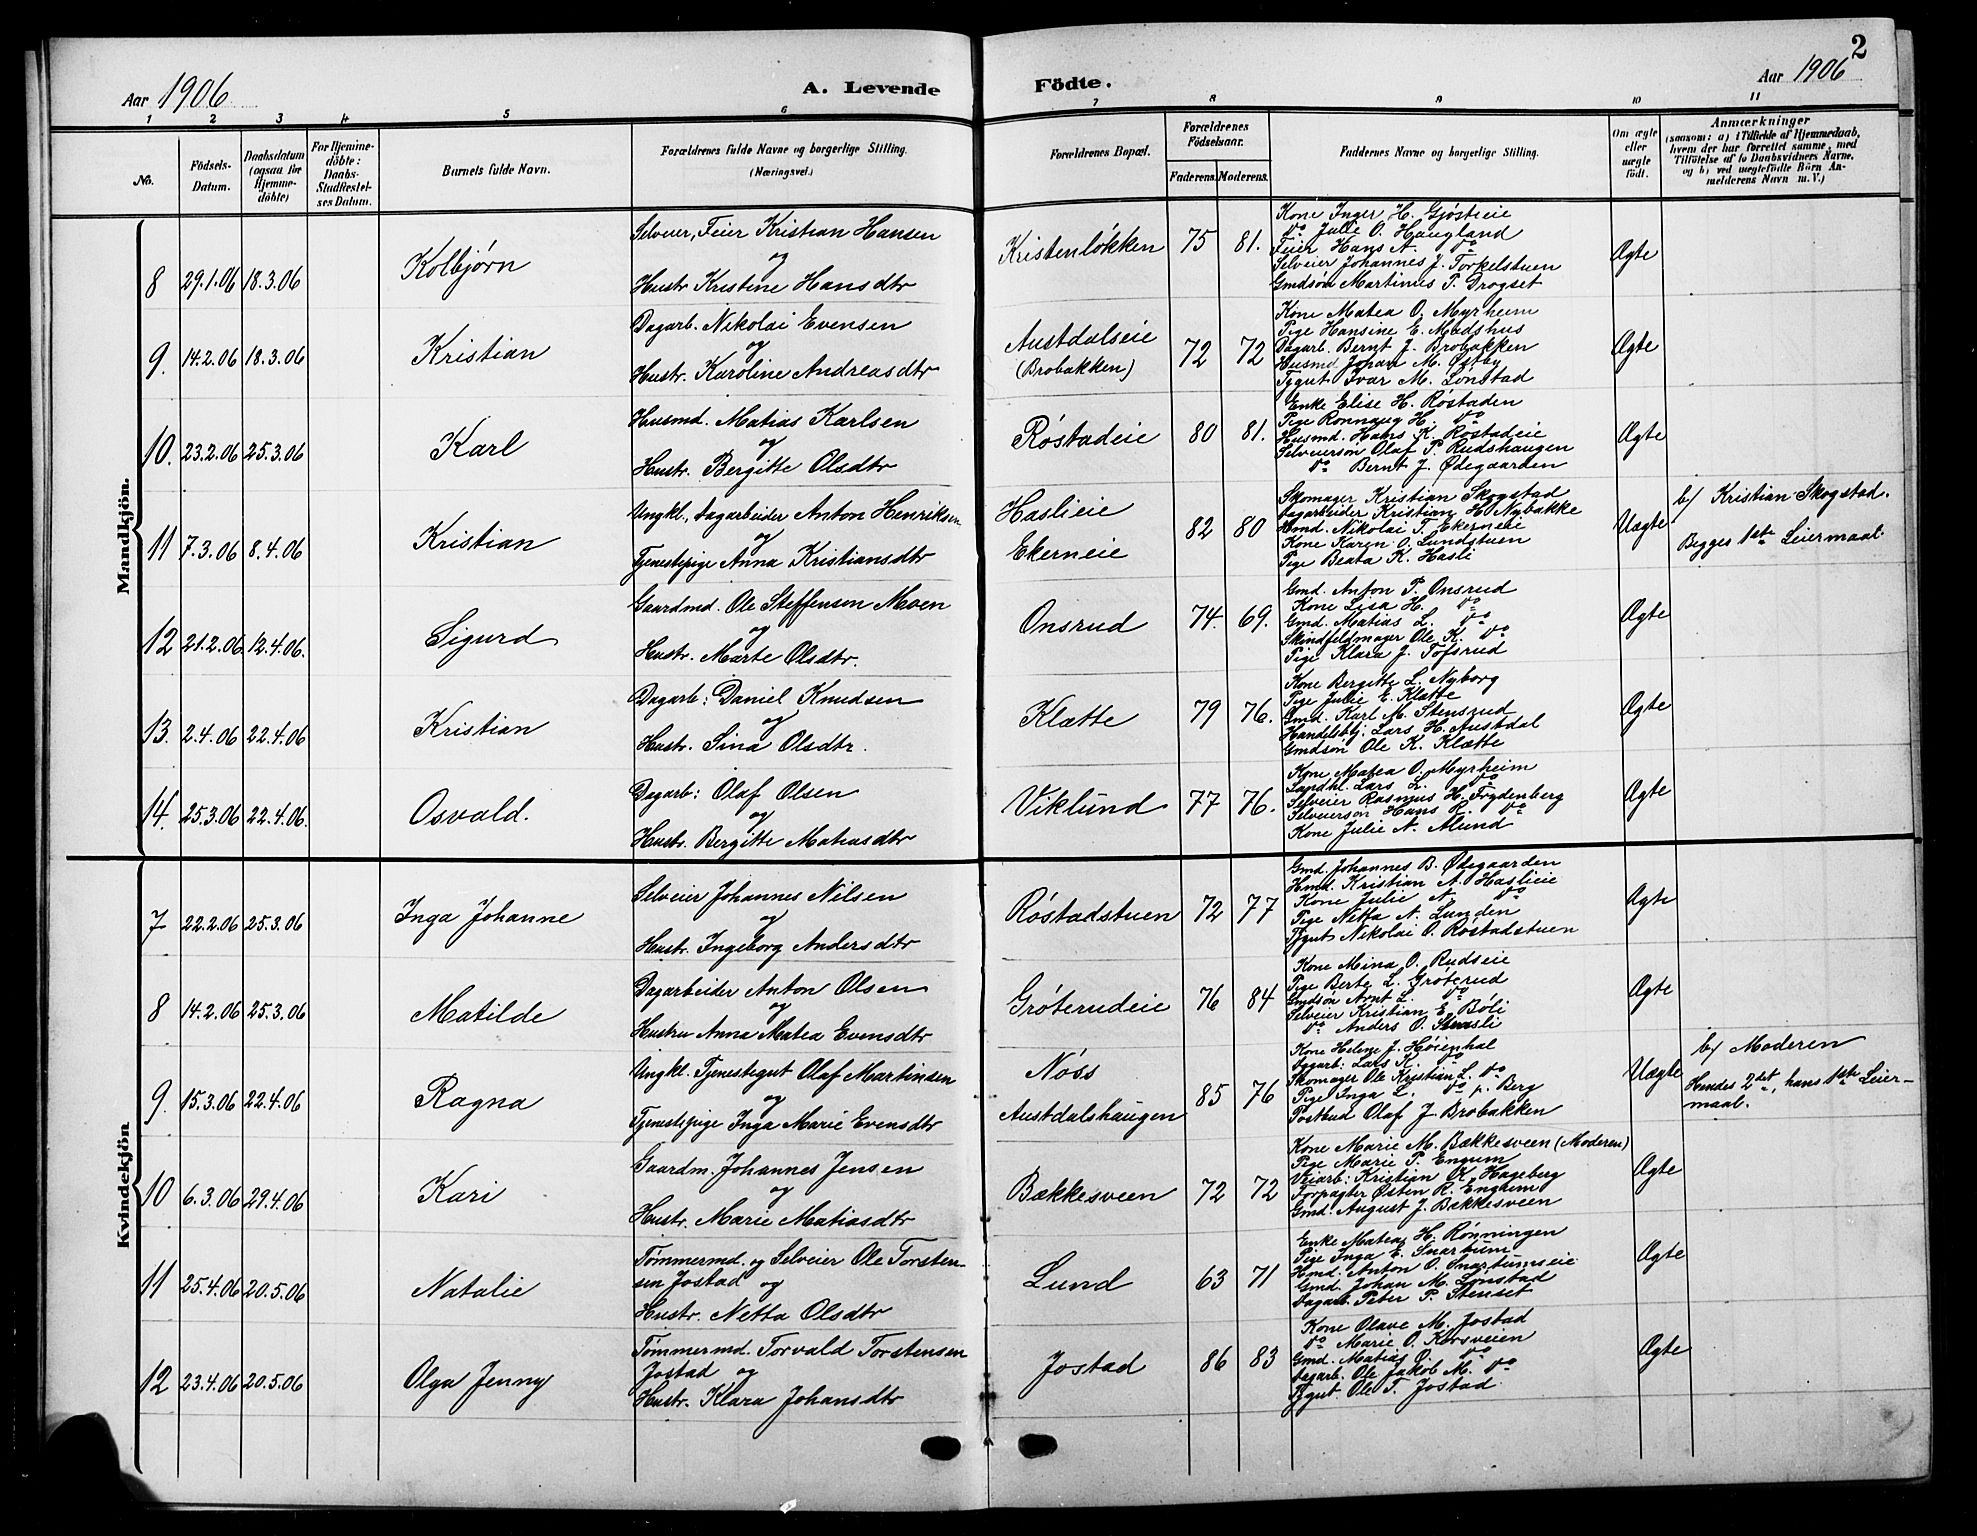 2
Aar 1906
A. Levende Födte.
Aar 1906
1 2 3 4 5 6 7 8 9 10 11
No.
Födsels-Datum.
Daabsdatum (ogsaa for Hjemmedöbte)
For Hjemmedöbte: Daabs-Stadfæstelses Datum.
Barnets fulde Navn.
Forældrenes fulde Navne og borgerlige Stilling.
(Næringsvei.)
Forældrenes Bopæl.
Forældrenes Födselsaar.
Faderens. Moderens.
Faddernes Navne og borgerlige Stilling.
Om ægte eller uægte födt.
Anmærkninger
(saasom: a) i Tilfælde af Hjemmedaab, hvem der har forrettet samme, med Tilföielse af to Daabsvidners Navne, og b) ved uægtefödte Börn Anmelderens Navn m. V.)
Mandkjön.
8 29.1.06 18.3.06 Kolbjørn
Selveier, Feier Kristian Hansen
og
Hustr. Kristine Hansdtr
Kristenløkken 75 81.
Kone Inger H. Gjøstieie
do Julie O. Haugland
Feier Hans A. do
Selveier Johannes J. Torkelstuen
Gmdsøn Martinus P. Drogset
Ægte
9. 14.2.06 18.3.06 Kristian
Dagarb. Nikolai Evensen
og
Hustr. Karoline Andreasdtr
Austdalseie
(Brobakken)
72 72
Kone Matea O. Myrheim
Pige Hansine E. Madshus
Dagarb. Bernt J. Brobakken
Husmd Johan M. Østby
Tygut Ivar M. Lønstad
Ægte
10. 23.2.06 25.3.06 Karl
Husmd. Matias Karlsen
og
Hustr. Bergitte Olsdtr
Røstadeie 80 81.
Enke Elise H. Røstaden
Pige Ronnaug H. do
Husmd. Hans K. Røstadeie
Selveiersøn Olaf P. Rudshaugen
do Bernt J. Ødegaarden
Ægte
11 7.3.06 8.4.06 Kristian
Ungkl., Dagarbeider Anton Henriksen
og
Tjenestepige Anna Kristiansdtr
Haslieie
Ekerneie
82 80
Skomager Kristian Skogstad
Dagarbeider Kristian H. Nybakke
Hmd. Nikolai T. Ekerneie
Kone Karen O. Lundstuen
Pige Beata K. Hasli
Uægte
b/ Kristian Skogstad.
Begges 1ste Leiermaal.
12 21.2.06 12.4.06. Sigurd
Gaardmd. Ole Steffensen Moen
og
Hustr. Marte Olsdtr.
Onsrud 74. 69.
Gmd. Anton P. Onsrud
Kone Lisa H. do
Gmd. Matias L. do
Skindfeldmager Ole K. do
Pige Klara J. Tofsrud
Ægte
13. 2.4.06 22.4.06 Kristian
Dagarb: Daniel Knudsen
og
Hustr. Sina Olsdtr.
Klætte 79 76.
Kone Bergitte L. Nyborg
Pige Julie E. Klætte
Gmd. Karl M. Stensrud
Handelsbtj. Lars H. Austdal
Gmdsøn Ole K. Klætte
Ægte
14. 25.3.06 22.4.06. Osvald.
Dagarb: Olaf Olsen
og
Hustr. Bergitte Matiasdtr
Viklund 77 76.
Kone Matea O. Myrheim
Landhl. Lars L. do
Selveier Rasmus H. Frydenberg
Selveiersøn Hans R. do
Kone Julie A. Mund
Ægte
Kvindekjön
7 22.2.06 25.3.06 Inga Johanne
Selveier Johannes Nilsen
og
Hustr. Ingeborg Andersdtr
Røstadstuen 72 77
Gmd. Johannes B. Ødegaarden
Hmd. Kristian A. Haslieie
Kone Julie A. do
Pige Netta N. Lunden
Tjgut Nikolai O. Røstadstuen
Ægte
8 14.2.06 25.3.06 Matilde
Dagarbeider Anton Olsen
og
Hustru Anna Matea Evensdtr
Grøterudeie 76 84
Kone Mina O. Rudseie
Pige Berte L. Grøterud
Gmdsøn Arnt L. do
Selveier Kristian E. Bøli
do Anders O. Stensli
Ægte
9. 15.3.06 22.4.06 Ragna
Ungkl. Tjenestegut Olaf Martinsen
og
Tjenestepige Inga Marie Evensdtr
Nøss
Austdalshaugen
85 76
Kone Helege J. Høienhal
Dagarb: Lars K. do
Skomager Ole Kristian L. do
Pige Inga L. do p. Berg
Postbud Olaf J. Brobakken
Uægte
b/ Moderen
Hendes 2det, hans 1ste Leiermaal.
10 6.3.06 29.4.06 Kari
Gaardm. Johannes Jensen
og
Hustr. Marie Matiasdtr
Bækkesveen 72 72
Kone Marie M. Bækkesveen (Moderen)
Pige Marie P. Engum
Veiarb: Kristian K. Hageberg
Forpagter Østen R. Enghem
Gmd. August J. Bækkesveen
Ægte
11 25.4.06 20.5.06 Natalie
Tømmermd. og Selveier Ole Torstensen
Jostad og
Hustr. Netta Olsdtr
Lund 63 71
Enke Matea H. Rønningen
Pige Inga E. Snartum
Hmd: Anton O. Snartumseie
Gmd. Johan M. Lønstad
Dagarb. Peter P. Stenset
Ægte
12 23.4.06 20.5.06 Olga Jenny
Tømmermd. Torvald Torstensen
Jostad og
Hustr. Klara Johansdtr
Jostad 86 83
Kone Olave M. Jostad
do Marie O. Korsveien
Gmd. Matias O. do
Dagarb. Ole Jakob M. do
Tjgut. Ole T. Jostad.
Ægte